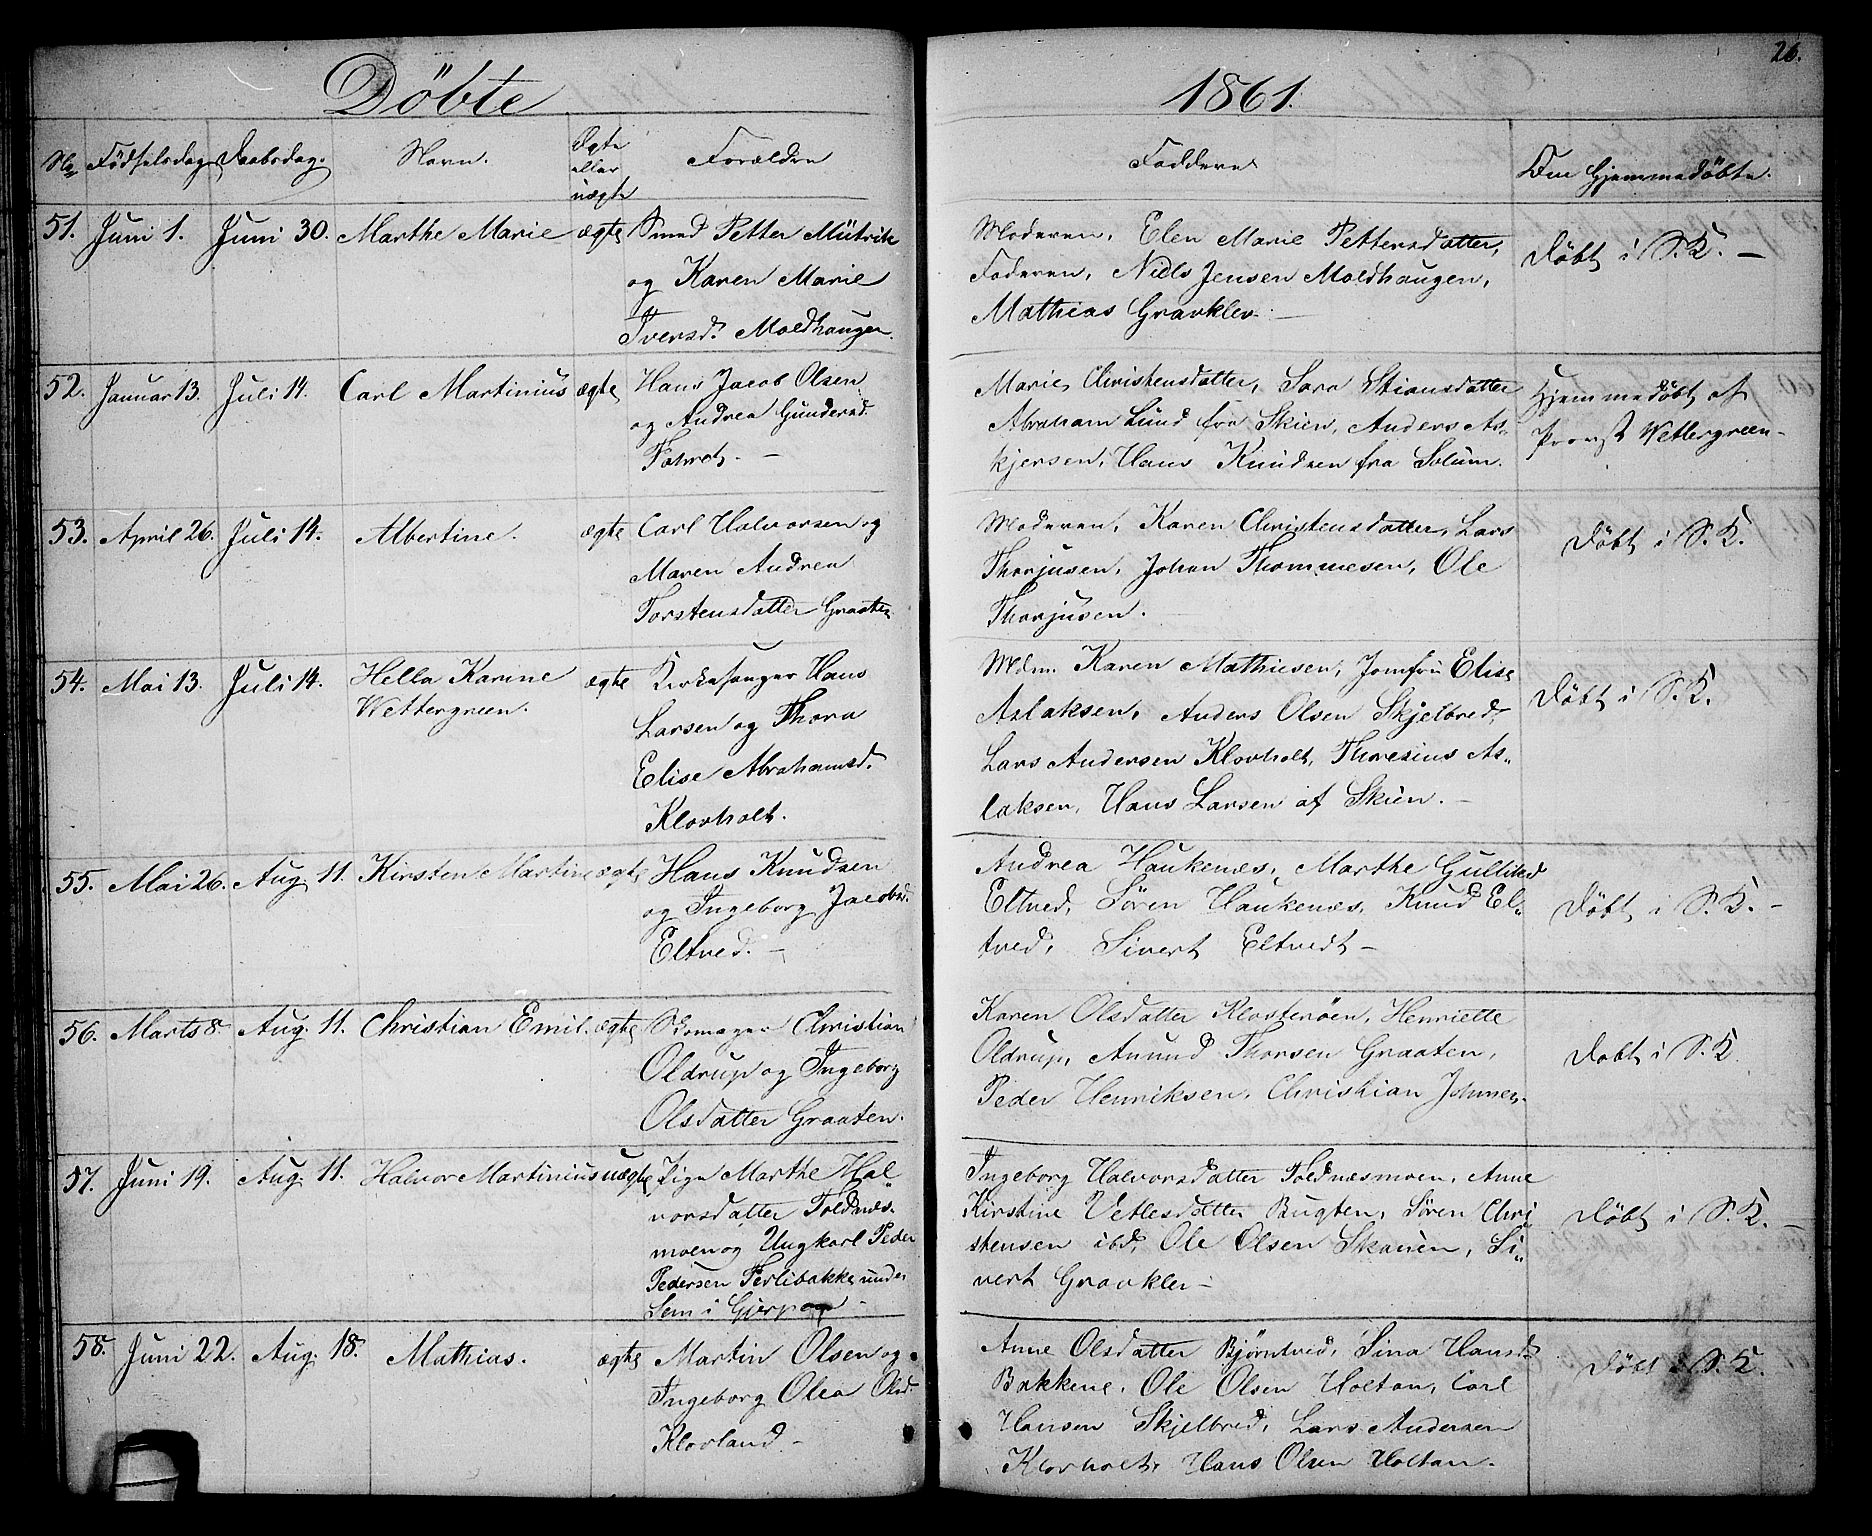 Döbte
1861.
26.
No Födselsdag. Daabsdag. Navn. Ægte eller uægte Forældre
Faddere Om Hjemmedöbte.
51. Juni 1. Juni 30. Marthe Marie ægte Smed Petter Mütrik
og Karen Marie
Iversd. Moldhaugen.
Moderen, Elen Marie Pettersdatter,
Faderen, Niels Jensen Moldhaugen,
Mathias Gravklev. —
Döbt i S. K. —
52. Januar 13. Juli 14. Carl Martinius ægte Hans Jacob Olsen
og Andrea Gundersd.
—
Marie Christensdatter, Sara Stiansdatter
Abraham Lund fra Skien, Anders As„
kjersen, Hans Knudsen fra Solum.
Hjemmedöbt af
Provst Wettergreen -
53. April 26. Juli 14. Albertine. ægte Carl Halvorsen og
Maren Andrea
Torstensdatter Graaten
Moderen, Karen Christensdatter, Lars
Thorjusen, Johan Thommesen, Ole
Thorjusen.
Döbt i S. K.
54. Mai 13. Juli 14. Hella Karine ægte Kirkesanger Hans
Wettergreen.
Larsen og Thora
Elise Abrahamsd.
Klovholt.
Mdm Karen Mathiesen, Jomfru Elise
Aslaksen, Anders Olsen Skjelbred,
Lars Andersen Klovholt, Thoresius As„
laksen, Hans Larsen af Skien. —
Döbt i S. K.
55. Mai 26. Aug. 11. Kirsten Martine ægte Hans Knudsen
og Ingeborg Jacobsd.
Eltved. —
Andrea Haukenæs, Marthe Gullikd
Eltved, Sören Haukenæs, Knud El„
tved, Sivert Eltvedt —
Döbt i S. K. -
56. Marts 8. Aug. 11. Christian Emil. ægte Skomager Christian
Oldrup og Ingeborg
Olsdatter Graaten.
Karen Olsdatter Klosteröen, Henriette
Oldrup, Amund Thorsen Graaten,
Peder Henriksen, Christian Johnsen.
Döbt i S. K.
57. Juni 19. Aug. 11. Halvor Martinius uægte Pige Marthe Hal„
vorsdatter Foldnæs-
moen og Ungkarl Peder
Pedersen Ferlibakke under
Sem i Gjerpen —
Ingeborg Halvorsdatter Foldnæsmoen, Anne
Kirstine Vetlesdatter Bugten, Sören Chri
stensen ibd, Ole Olsen Skauen, Si„
vert Gravklev —
Döbt i S. K. —
58. Juni 22. Aug. 18. Mathias. ægte Martin Olsen og
Ingeborg Olea Olsd.
Klovland —
Anne Olsdatter Bjørntved, Sina Hansd.
Bakkene, Ole Olsen Holtan, Carl
Hansen Skjelbred, Lars Andersen
Klovholt, Hans Olsen Holtan.
Döbt i S. K.